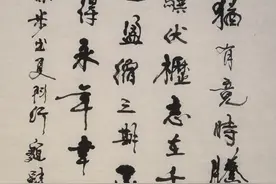 猶有竟時騰
驥伏櫪志在千
盈縮之期不
得永年幸
步出夏門行龜雖